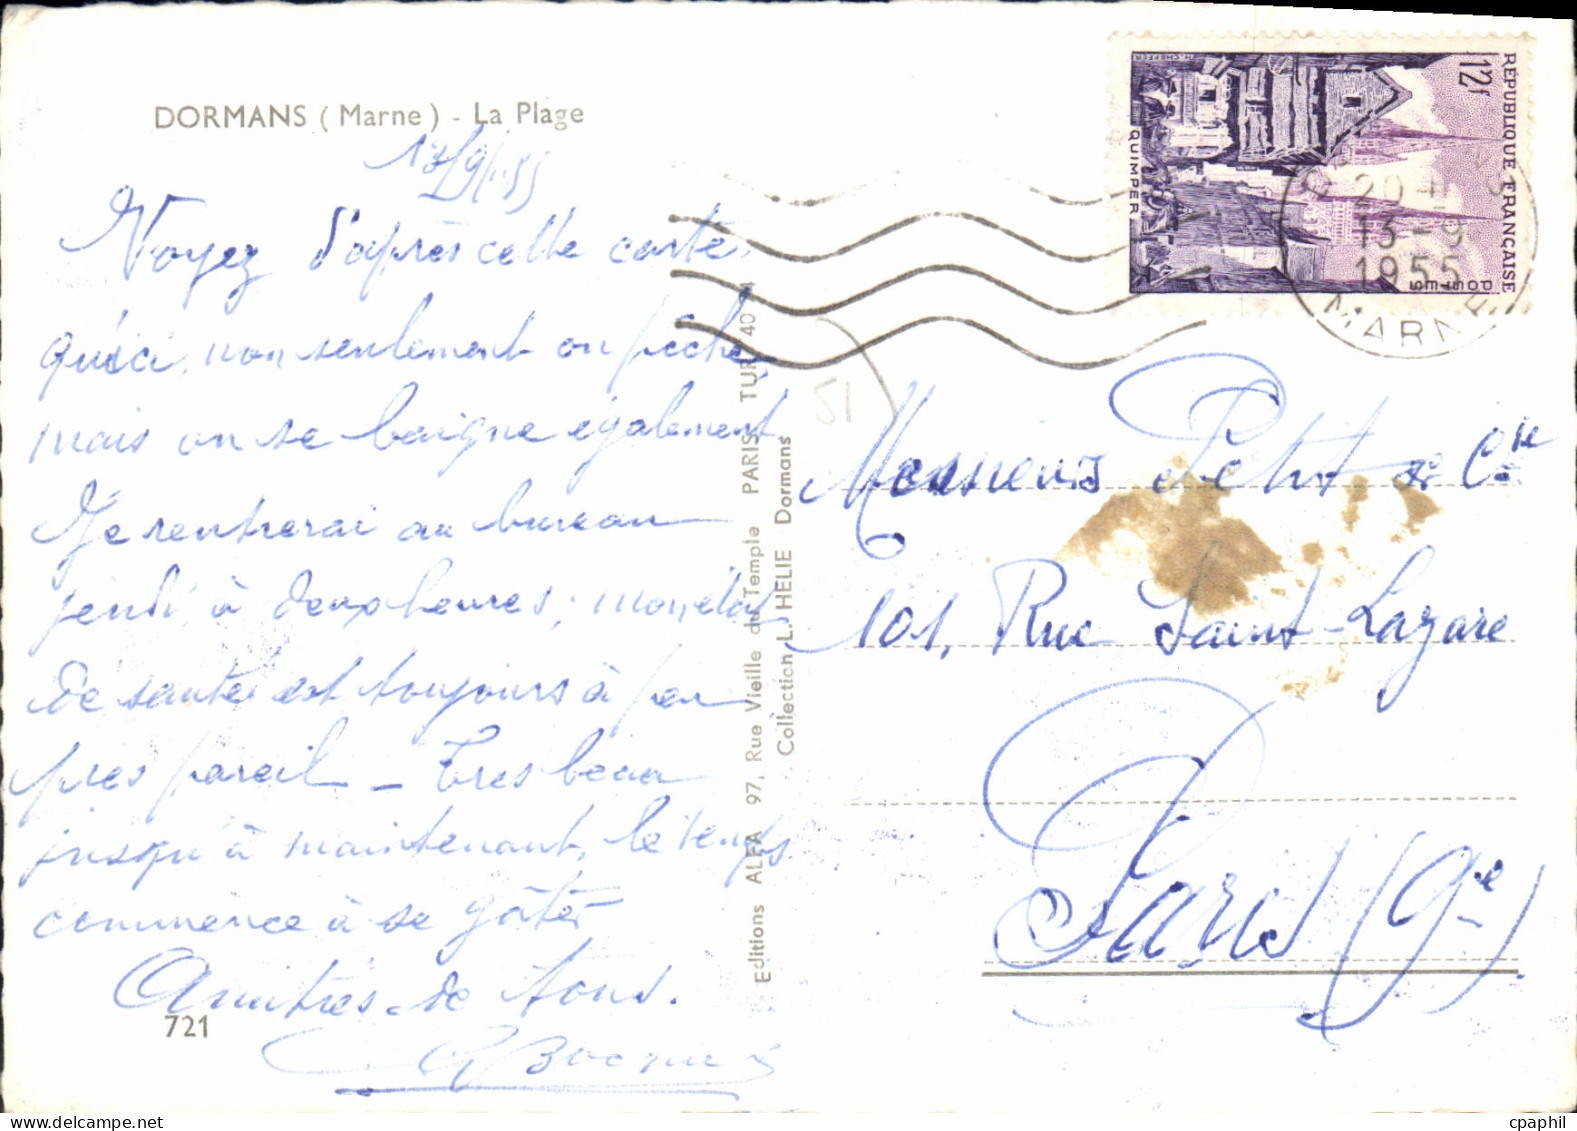 DORMANS ( Marne ) - La Plage
13/9/55
Voyez d'après cette carte
qu'ici, non seulement on pêche
mais on se baigne également
Je rentrerai au bureau
jeudi à deux heures; mon état
de santé est toujours à peu
près pareil - Très beau
jusqu'à maintenant, le temps
commence à se gâter
Amitiés de tous.
721
Editions ALFA 97, Rue Vieille du Temple PARIS TUR. 40
Collection L. HELIE Dormans
RÉPUBLIQUE FRANÇAISE
12f
POSTES
QUIMPER
H. CHEFFER
20 H
13-9
1955
MARNE
51
Messieurs Petit & Cie
101, Rue Saint-Lazare
Paris (9e)
cpaphil